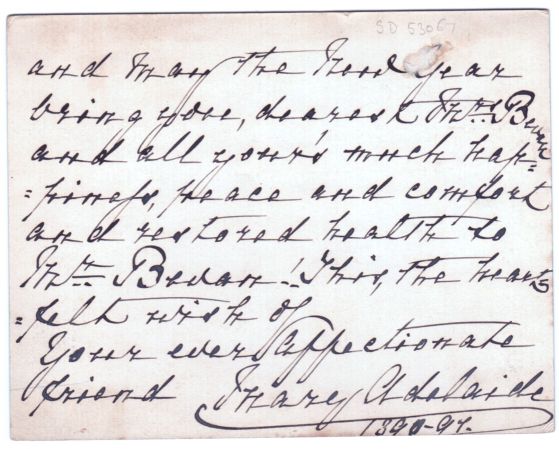 SD 53067
and may the New Year
bring you, dearest Mrs. Bevan
and all your's much hap=
=piness, peace and comfort
and restored health to
Mr. Bevan! This, the heart
=felt wish of
Your ever affectionate
friend Mary Adelaide
1890-91.